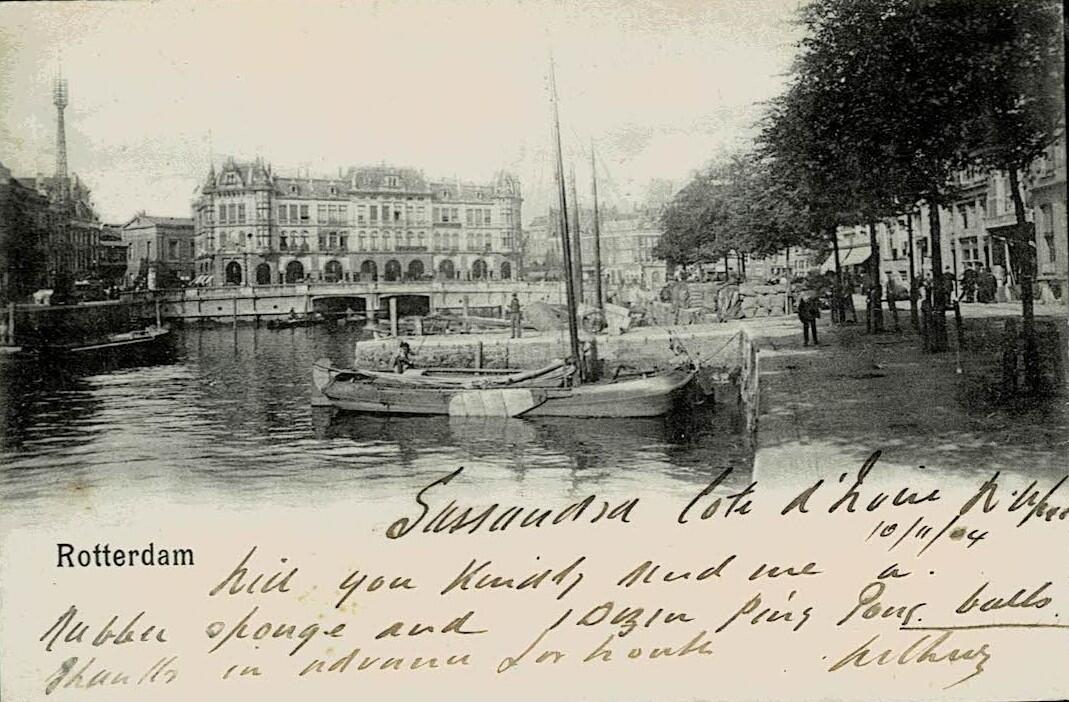 Sassandra Cote d'Ivoire
10/11/04
Rotterdam
Will you Kindly send me a
Rubber sponge and 1 Dozen Ping Pong balls.
Thanks in advance for